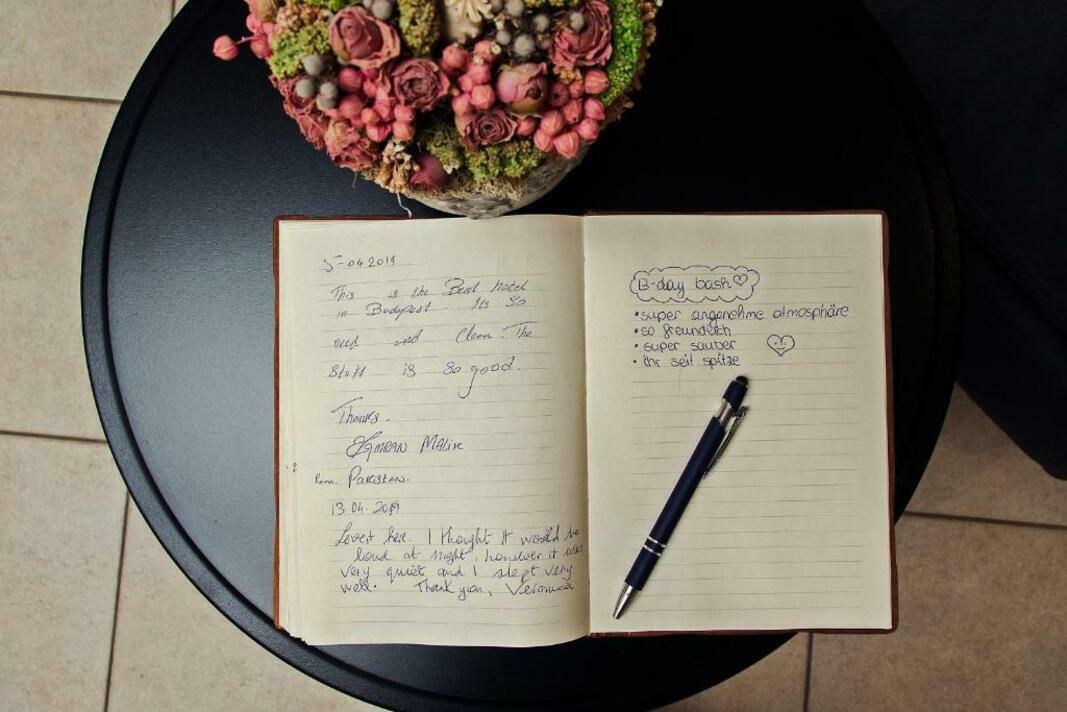 5-04 2019
This is the Best hotel
in Budapest. Its So
and Clean. The
Staff is So good.
Thanks.
MALIK
from PAKISTAN.
13.04.2019
Loved it here. I thought it would be
loud at night, however it was
very quiet and I slept very
well. Thank you, Veronica
B-day bash
• super angenehme atmosphäre
• so freundlich
• super sauber
• ihr seit spitze